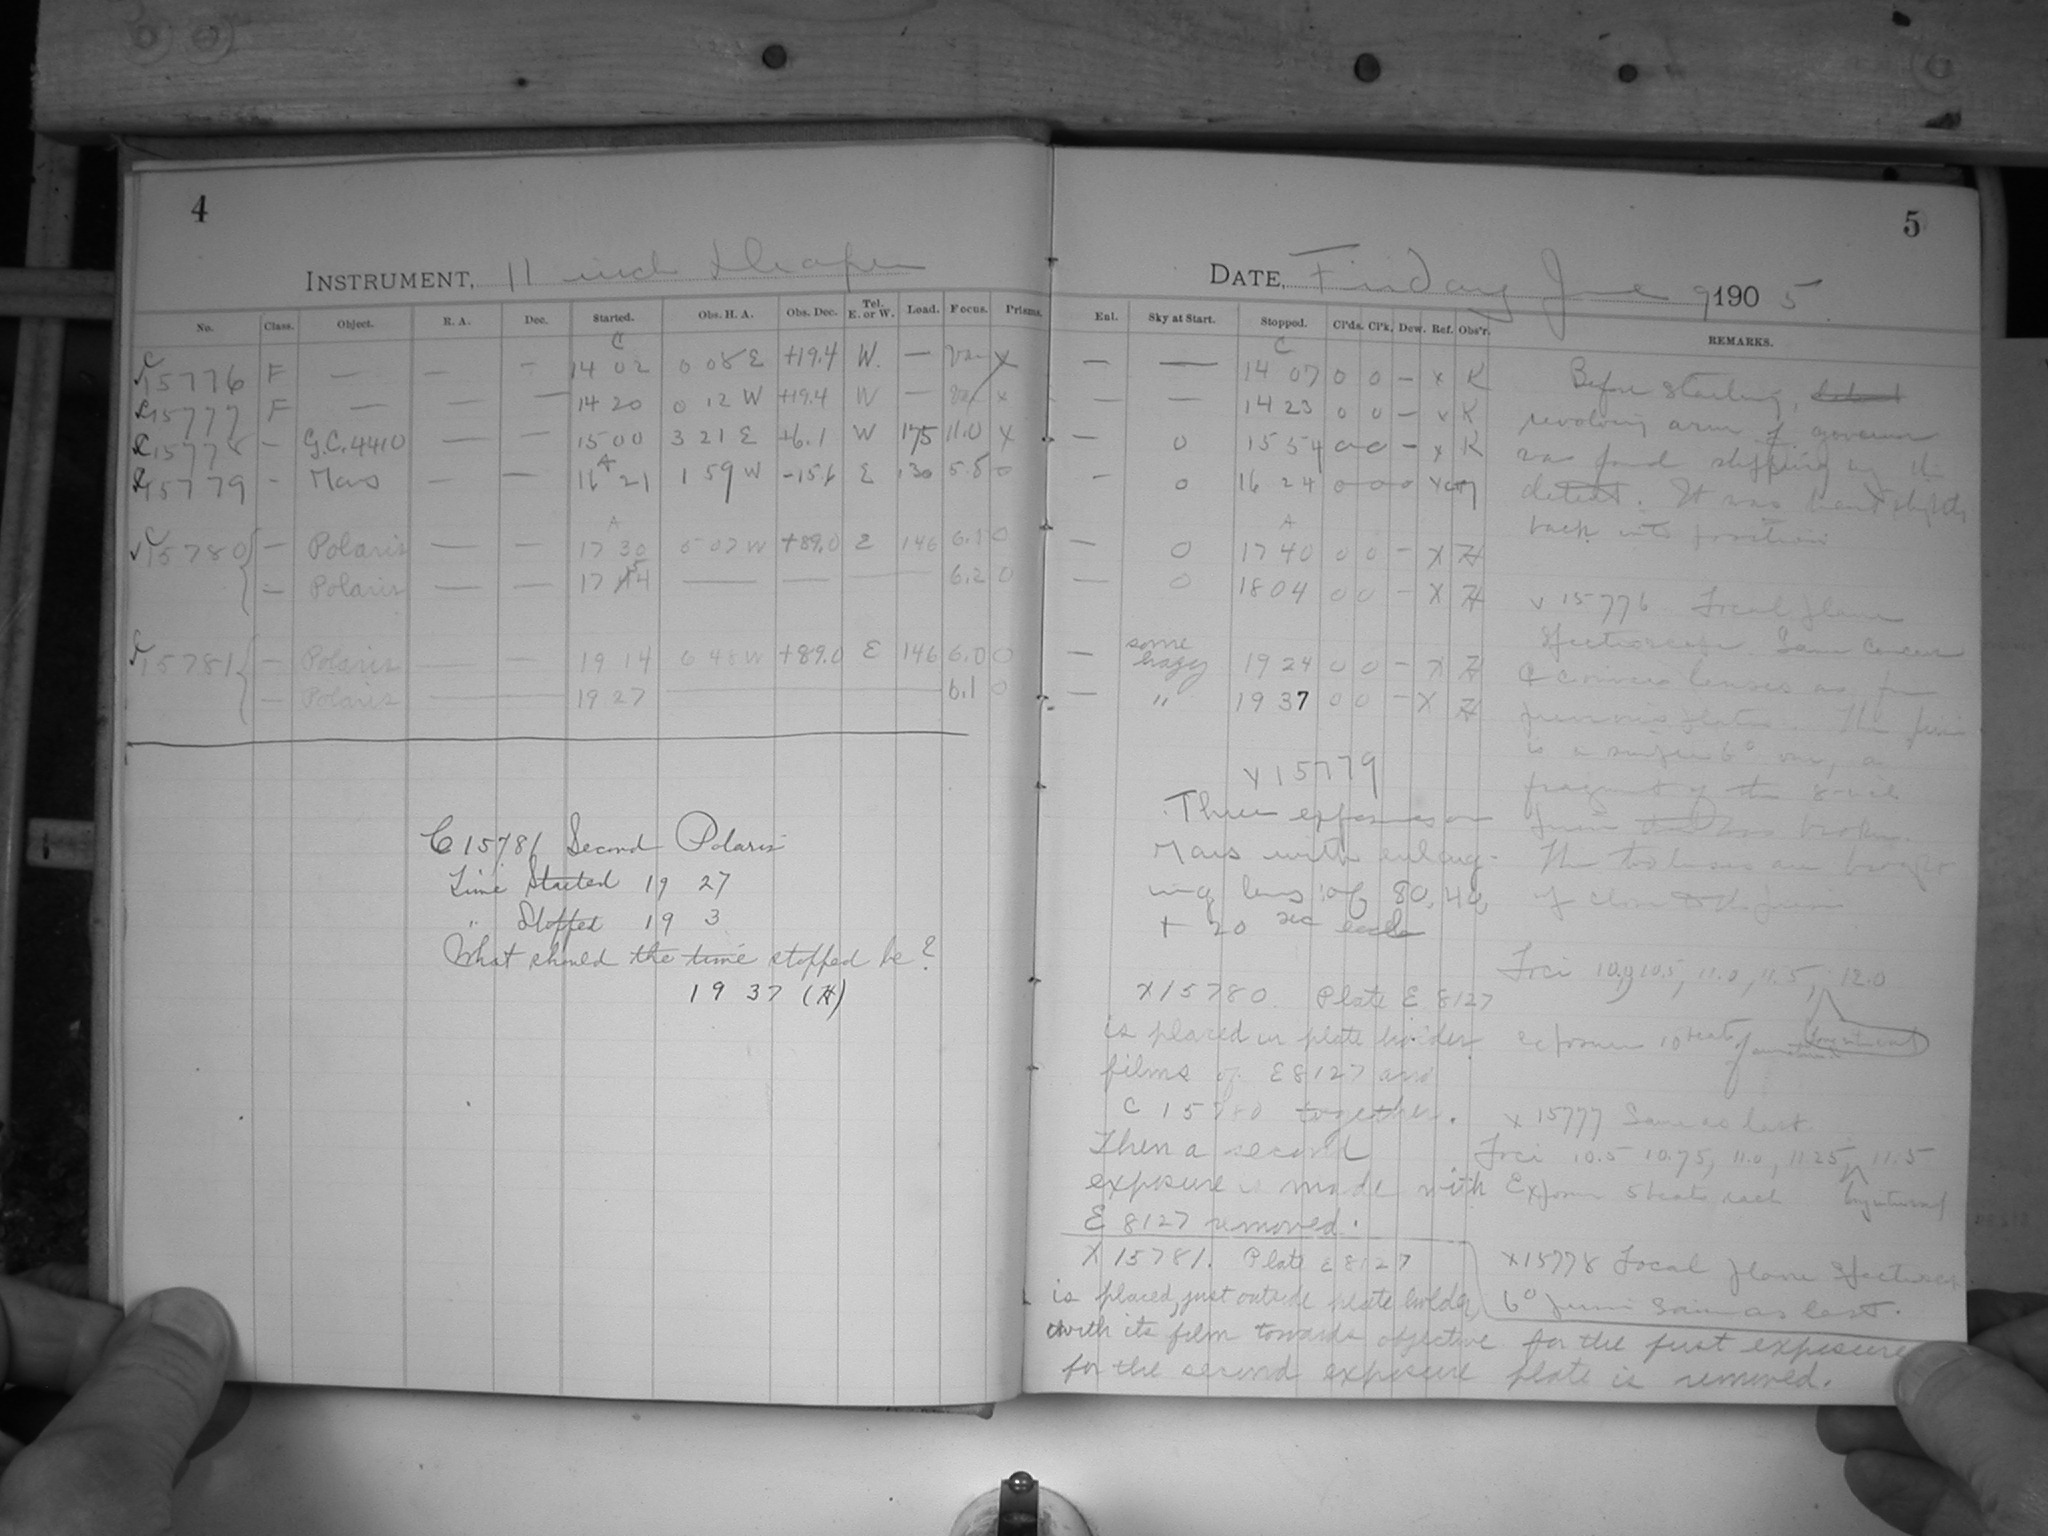 4
INSTRUMENT, 11 inch Draper
No. Class. Object. R. A. Dec. Started. Obs. H. A. Obs. Dec. Tel. E. or W. Load. Focus. Prisms.
C
C15776 F — — — 14 02 0 08 E +19.4 W. — Var X
C15777 F — — — 14 20 0 12 W +19.4 W — Var x
C15778 — G.C. 4410 — — 15 00 3 21 E +6.1 W 175 11.0 X
A
C15779 - Mars — — 16 21 1 59 W -15.6 E 130 5.5 0
A
C15780 — Polaris — — 17 30 5 07 W +89.0 E 146 6.1 0
— Polaris — — 17 54 — — — 6.2 0
C15781 — Polaris — — 19 14 6 48 W +89.0 E 146 6.0 0
— Polaris — 19 27 — 6.1 0
C15781 Second Polaris
Time Started 19 27
" Stopped 19 3
What should the time stopped be?
19 37 (H)
5
DATE, Friday June 9 1905
Enl. Sky at Start. Stopped. Cl'ds. Cl'k. Dew. Ref. Obs'r. REMARKS.
C
— — 14 07 0 0 – x K
— — 14 23 0 0 – x K
— 0 15 54 0 0 – x K
- 0 16 24 0 0 0 x
A
— 0 17 40 0 0 – X H
— 0 18 04 0 0 – X H
— some hazy 19 24 0 0 – X H
— " 19 37 0 0 – X H
X15779
Three exposures on
Mars with enlarg-
ing lens of 80, 40,
+ 20 sec each
X15780. Plate E 8127
is placed in plate holder
films of E8127 and
C 15780 together.
Then a second
exposure is made with
E 8127 removed.
X 15781. Plate E8127
is placed, just outside plate holder,
with its film towards objective for the first exposure
for the second exposure plate is removed.
Before starting,
revolving arm of governor
was found slipping by the
detent. It was bent slightly
back into position
X 15776 Focal plane
Spectroscope. Same concave
& convex lenses as for
previous plates. The prism
is a 6° one, a
fragment of the 8-inch
prism broken.
The two lenses are brought
up close to the prism
Foci 10.0, 10.5, 11.0, 11.5, 12.0
Exposures 10 beats of
X 15777 Same as last
Foci 10.5 10.75, 11.0, 11.25, 11.5
Exposures 5 beats each
X15778 Focal plane Spectroscope
6° prism Same as last.